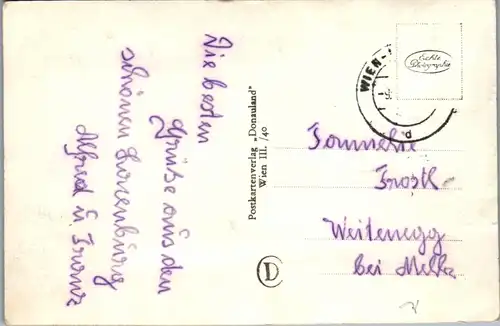 Die besten
Grüße aus den
schönen
Alfred u. Franz
Postkartenverlag „Donauland"
Wien III. /40
D
WIEN
Echte
Photographie
Frostl
Weitenegg
bei Melk